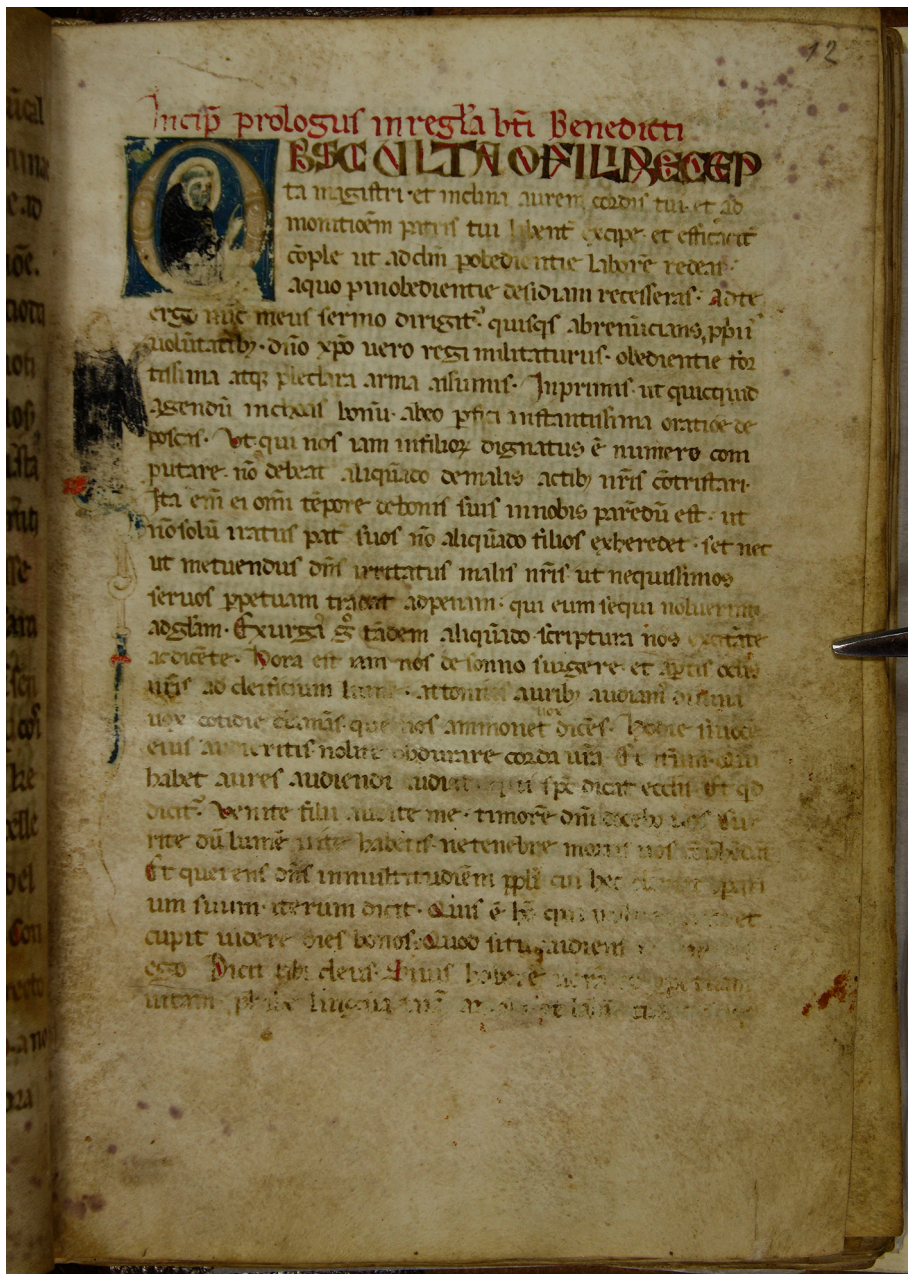 12
Incip̄ prologus in regl̄a bt̄i Benedicti
OBSCULTA O FILI PRECEP
ta magistri · et inclina aurem cordis tui · et ad
monitioēm patris tui libent̄ excipe · et efficacit̄
cōple ut ad eūm p obedientie laborē redeas ·
a quo p inobedientie desidiam recesseras · Ad te
ergo nūc meus sermo dirigit᷑ quisqs abrenūcians p̱pii
uolūtatibꝫ · dn̄o xp̄o uero regi militaturus · obedientie for
tissima atqꝫ p̄clara arma assumis · Inprimis · ut quicquid
agendū incipis bonū · ab eo p̱fici instantissima oratiōe de
poscas · Ut qui nos iam in filioꝝ dignatus ē numero com
putare · nō debeat aliqūado de malis actibꝫ nr̄is cōtristari ·
Ita em̄ ei omī tēpore de bonis suis in nobis parēdū est · ut
nō solū iratus pat̄ suos nō aliqūado filios exheredet · set nec
ut metuendus dn̄s irritatus malis nr̄is ut nequissimos
seruos p̱petuam tradat ad penam · qui eum sequi noluerint
ad gl̄am · Exurgam̄ g° tādem aliqūado scriptura nos excitāte
ac dicēte · Hora est iam nos de sonno surgere et aptis oculis
nr̄is ad deificum lumen · attonitis auribꝫ audiam̄ diuina
uox cotidie clamās que nos ammonet dicēs · Hodie si uocē
eius audieritis nolite obdurare corda ur̄a Et iterum · Qui
habet aures audiendi audiat quid sp̄c dicat ecclīis Et qd
dicit᷑ Venite filii audite me · timorē dn̄i docebo uos Cur
rite dū lumē uite habetis · ne tenebre mortis uos cōphēdat
Et querens dn̄s in multitudiēm p̱pli cui hec operari
um suum · iterum dicit · Quis ē hō qui uult et
cupit uidere dies bonos · Quod si tu audiens
ego Dicit tibi deus · Si uis habere
uitam phibe linguam tuā a malo et labia